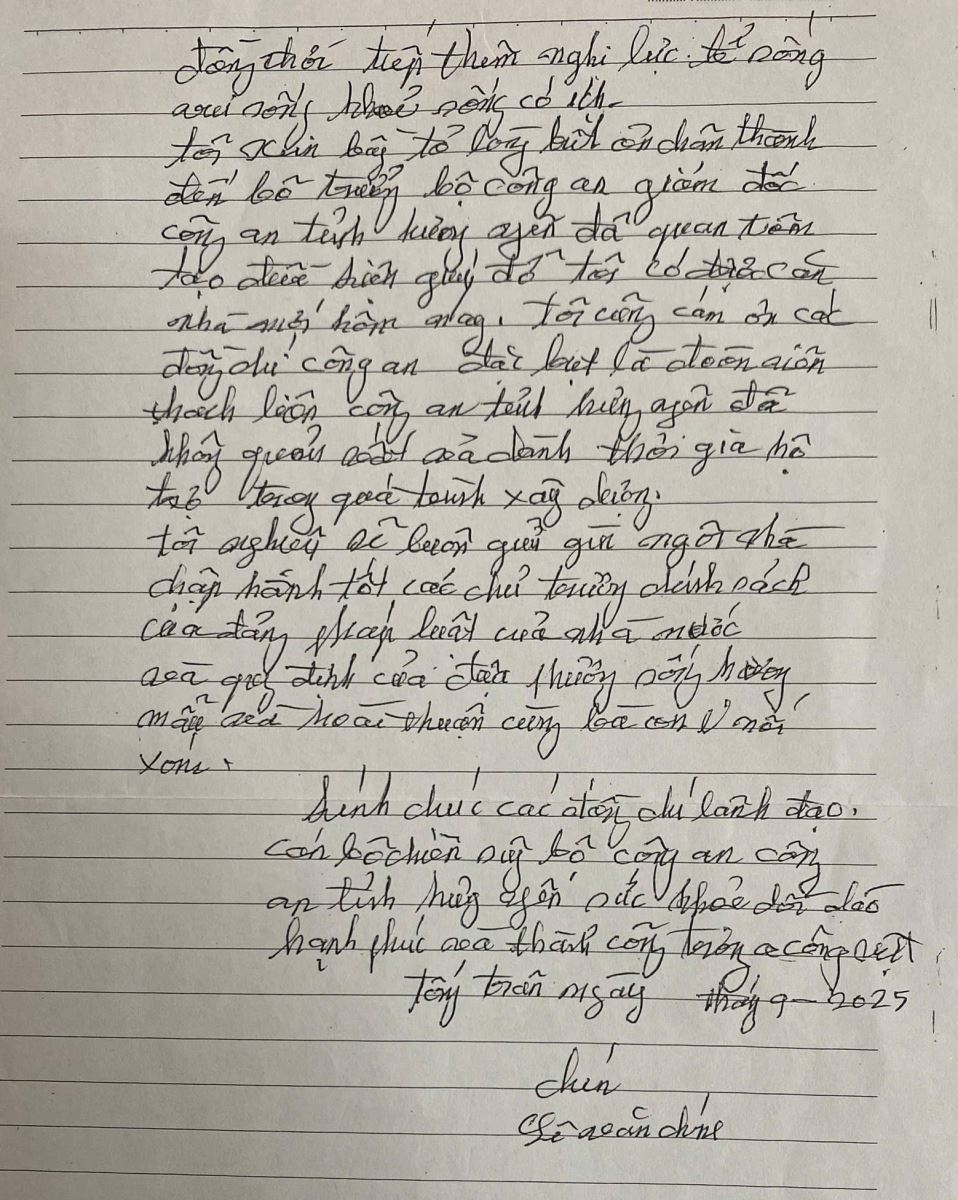 đồng thời tiếp thêm nghị lực để sống
vui sống khoẻ sống có ích.
tôi xin bày tỏ lòng biết ơn chân thành
đến bộ trưởng bộ công an giám đốc
công an tỉnh hưng yên đã quan tâm
tạo điều kiện giúp đỡ tôi có được căn
nhà mới hôm nay. tôi cũng cảm ơn các
đồng chí công an đặc biệt là đoàn viên
thanh niên công an tỉnh hưng yên đã
không quản vất vả dành thời gia hỗ
trợ trong quá trình xây dựng.
tôi nghiện sẽ luôn giữ gìn ngôi nhà
chấp hành tốt các chủ trương chính sách
của đảng pháp luật của nhà nước
và quy định của địa phương sống hương
mẫu và hoà thuận cùng bà con ở nơi
xóm.
kính chúc các đồng chí lãnh đạo.
cán bộ chiến sỹ bộ công an công
an tỉnh hưng yên sức khoẻ dồi dào
hạnh phúc và thành công trong công việt
Tống trân ngày tháng 9-2025
chín
văn chín